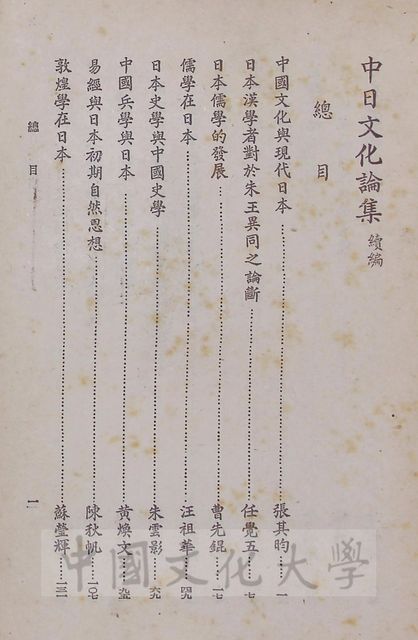 中日文化論集 續編
總目
中國文化與現代日本………張其昀……一
日本漢學者對於朱王異同之論斷………任覺五……七
日本儒學的發展………曹先錕……一七
儒學在日本………汪祖華……四九
日本史學與中國史學………朱雲影……六九
中國兵學與日本………黃煥文……九五
易經與日本初期自然思想………陳秋帆……一〇七
敦煌學在日本………蘇瑩輝……一三一
總目
一
中國文化大學